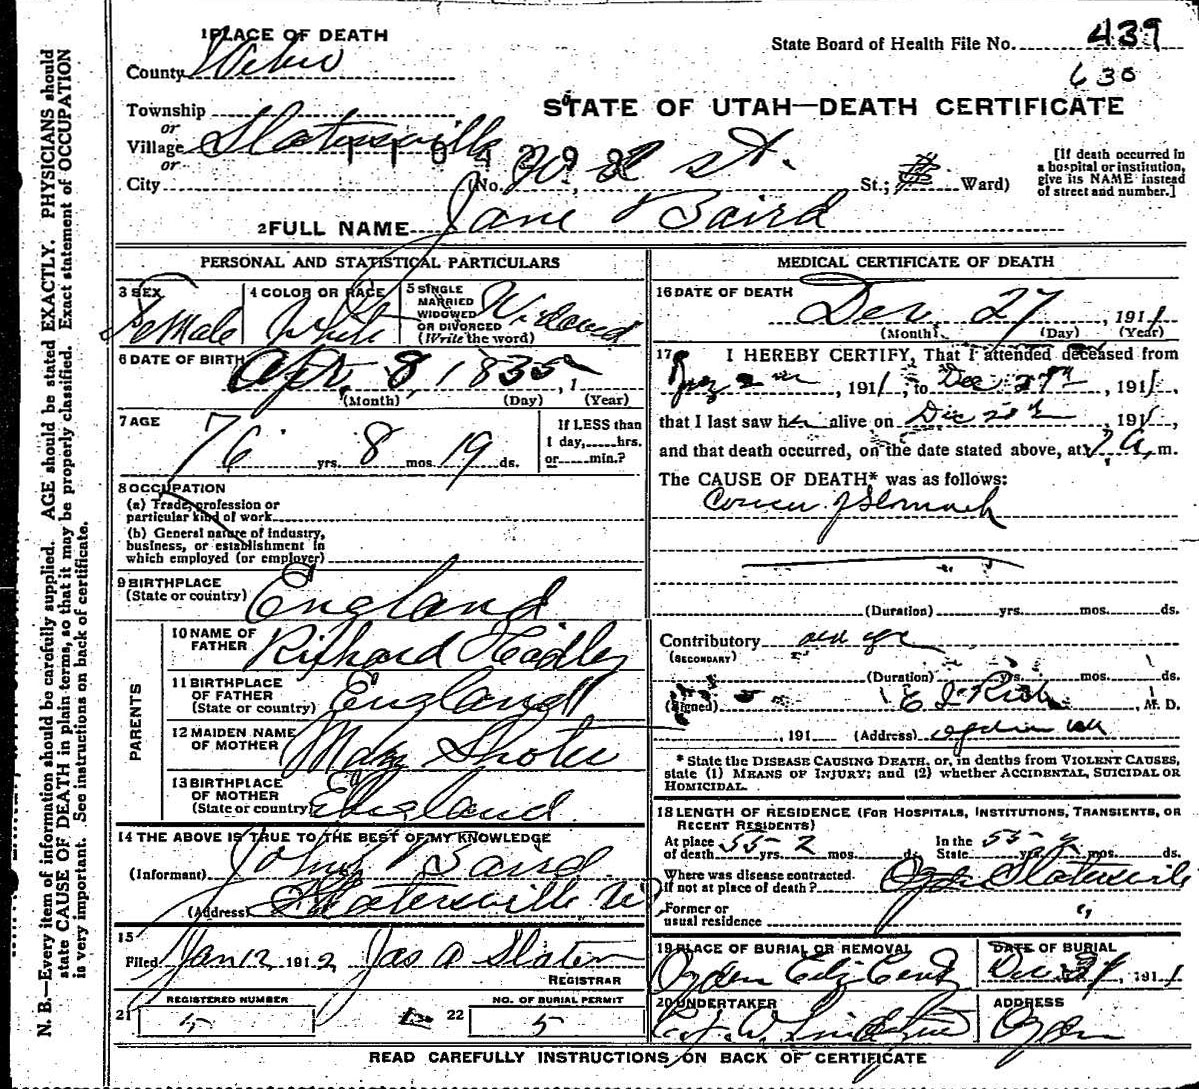 1 PLACE OF DEATH
County Weber
State Board of Health File No. 439
630
STATE OF UTAH—DEATH CERTIFICATE
Township
or
Village Slatersville
or
City (No. St.; Ward)
[If death occurred in
a hospital or institution,
give its NAME instead
of street and number.]
2 FULL NAME Jane Baird
PERSONAL AND STATISTICAL PARTICULARS
3 SEX Female
4 COLOR OR RACE White
5 SINGLE
MARRIED
WIDOWED
OR DIVORCED
(Write the word) Widowed
6 DATE OF BIRTH Apr. 8, 1835, 1
(Month) (Day) (Year)
7 AGE 76 yrs. 8 mos. 19 ds.
If LESS than
1 day, hrs.
or min.?
8 OCCUPATION
(a) Trade, profession or
particular kind of work
(b) General nature of industry,
business, or establishment in
which employed (or employer)
9 BIRTHPLACE
(State or country) England
PARENTS
10 NAME OF
FATHER Richard Hadley
11 BIRTHPLACE
OF FATHER
(State or country) England
12 MAIDEN NAME
OF MOTHER Mary
13 BIRTHPLACE
OF MOTHER
(State or country) England
14 THE ABOVE IS TRUE TO THE BEST OF MY KNOWLEDGE
(Informant) John Baird
(Address) Slatersville
15
Filed Jan 12, 1912, Jas A Slater
REGISTRAR
REGISTERED NUMBER
21 5
NO. OF BURIAL PERMIT
22 5
MEDICAL CERTIFICATE OF DEATH
16 DATE OF DEATH
Dec 27, 1911
(Month) (Day) (Year)
17 I HEREBY CERTIFY, That I attended deceased from
, 1911, to Dec 27th, 1911,
that I last saw her alive on Dec, 191,
and that death occurred, on the date stated above, at A. m.
The CAUSE OF DEATH* was as follows:
Cancer of Stomach
(Duration) yrs. mos. ds.
Contributory old age
(SECONDARY)
(Duration) yrs. mos. ds.
(Signed) E I Rich, M. D.
, 191 (Address) Ogden Utah
* State the DISEASE CAUSING DEATH, or, in deaths from VIOLENT CAUSES,
state (1) MEANS OF INJURY; and (2) whether ACCIDENTAL, SUICIDAL OR
HOMICIDAL.
18 LENGTH OF RESIDENCE (FOR HOSPITALS, INSTITUTIONS, TRANSIENTS, OR
RECENT RESIDENTS)
At place
of death 55 yrs. 2 mos. ds.
In the
State 55 yrs. mos. ds.
Where was disease contracted
if not at place of death? Slatersville
Former or
usual residence
19 PLACE OF BURIAL OR REMOVAL
Ogden City Cem
DATE OF BURIAL
Dec, 1911
20 UNDERTAKER
ADDRESS
Ogden
READ CAREFULLY INSTRUCTIONS ON BACK OF CERTIFICATE
N. B.—Every item of information should be carefully supplied. AGE should be stated EXACTLY. PHYSICIANS should
state CAUSE OF DEATH in plain terms, so that it may be properly classified. Exact statement of OCCUPATION
is very important. See instructions on back of certificate.